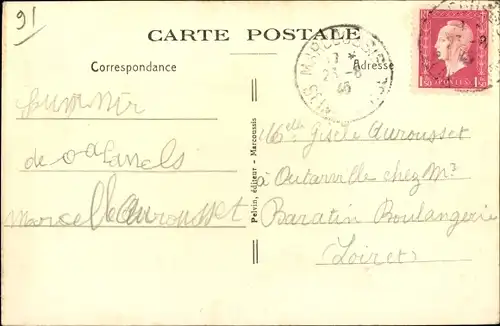 91
CARTE POSTALE
Correspondance
Adresse
MARCOUSSIS
23-6
45
POSTES
1F50
Souvenir
de
Marcelle Aurousset
Pelvin, éditeur - Marcoussis
Melle Gisèle Aurousset
à Outarville chez Mr
Baratin Boulangerie
Loiret